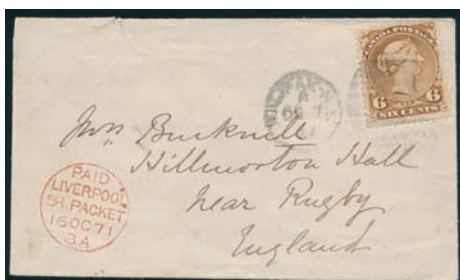 CANADA POSTAGE
6 6
SIX CENTS
Mrs Bucknill
Hillmorton Hall
near Rugby
England
PAID
LIVERPOOL
BR. PACKET
16 OC 71
3A